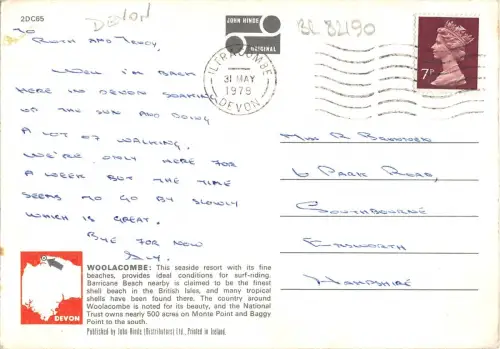 2DC65
DEVON
JOHN HINDE
ORIGINAL
BR 82190
ILFRACOMBE
31 MAY
1978
DEVON
7P
TO
RUTH AND
WELL I'M BACK
HERE IN DEVON SOAKING
UP THE SUN AND DOING
A LOT OF WALKING.
WE'RE ONLY HERE FOR
A WEEK BUT THE TIME
SEEMS TO GO BY SLOWLY
WHICH IS GREAT.
BYE FOR NOW
MISS R
6 PARK ROAD,
SOUTHBOURNE
EMSWORTH
HAMPSHIRE
WOOLACOMBE: This seaside resort with its fine
beaches, provides ideal conditions for surf-riding.
Barricane Beach nearby is claimed to be the finest
shell beach in the British Isles, and many tropical
shells have been found there. The country around
Woolacombe is noted for its beauty, and the National
Trust owns nearly 500 acres on Monte Point and Baggy
Point to the south.
Published by John Hinde (Distributors) Ltd., Printed in Ireland.
DEVON